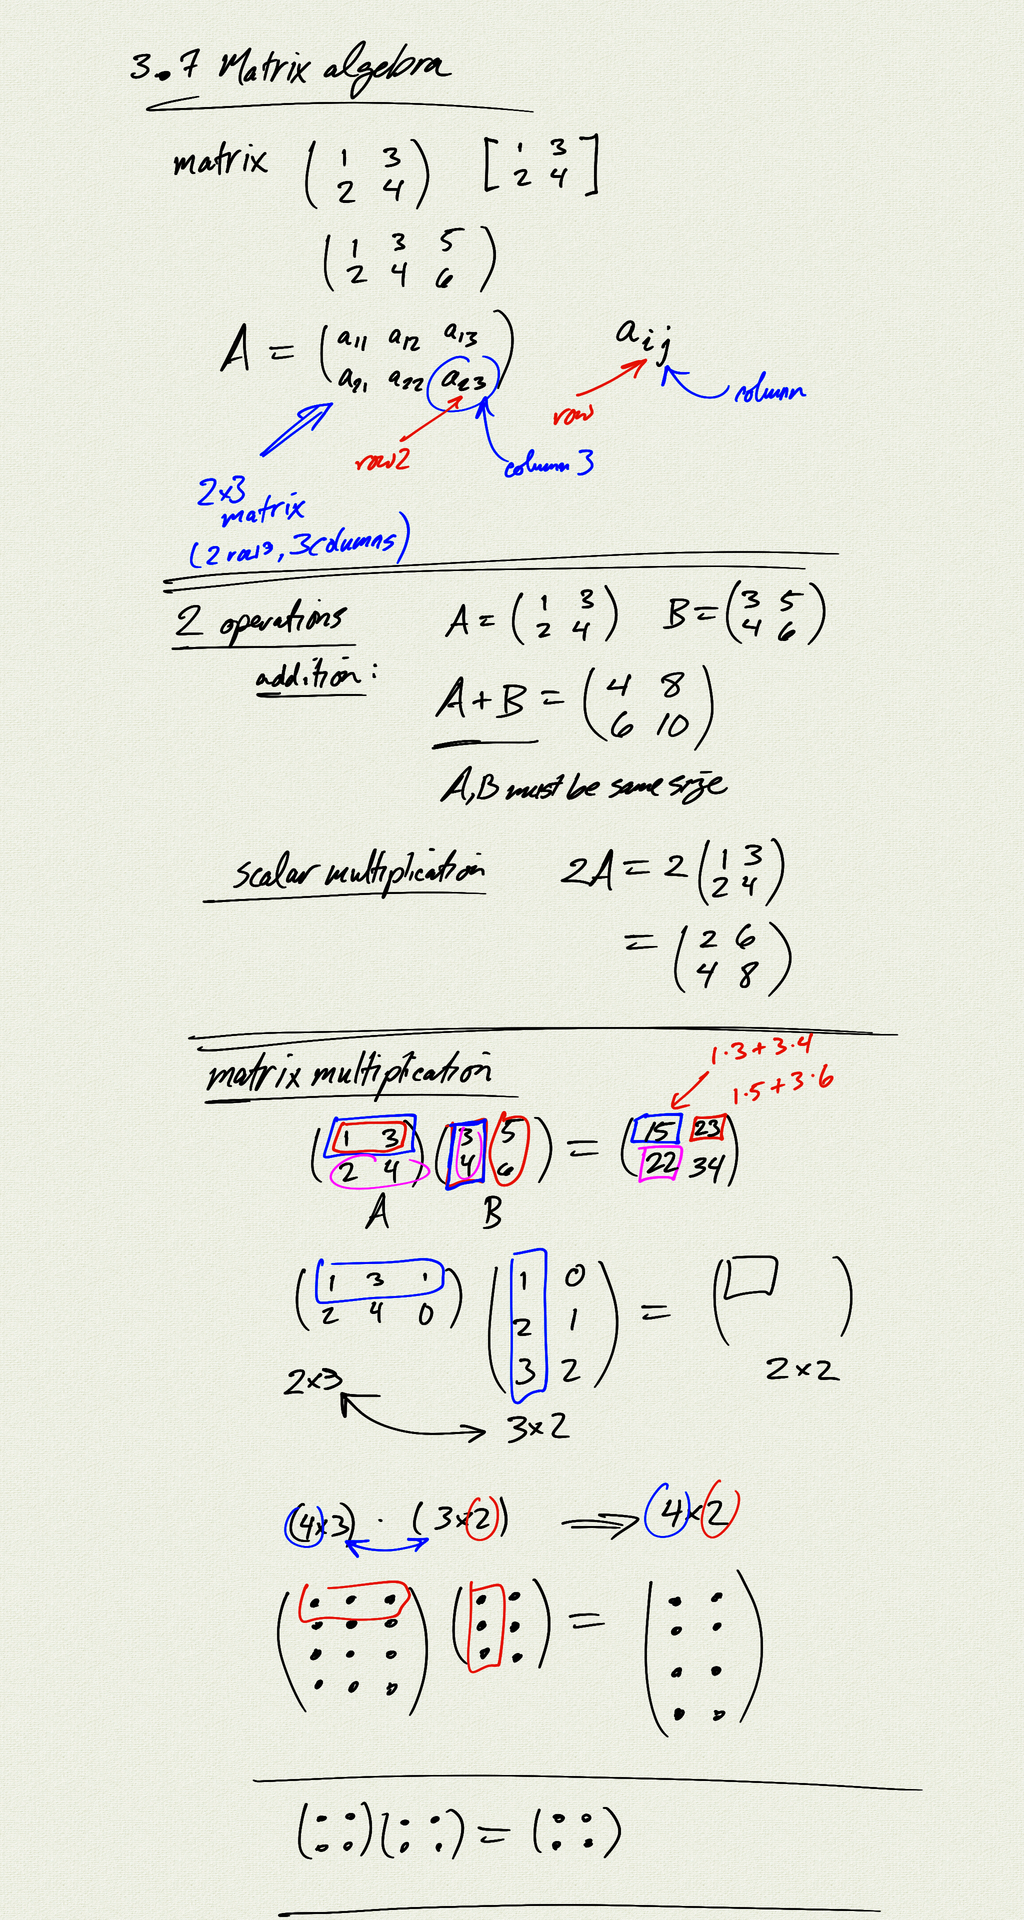 3.7 Matrix algebra
matrix ( 1 3 ) [ 1 3 ]
( 2 4 ) [ 2 4 ]
( 1 3 5 )
( 2 4 6 )
A = ( a11 a12 a13 ) aij
( a21 a22 a23 )
row column
row 2 column 3
2×3
matrix
(2 rows, 3 columns)
2 operations A = ( 1 3 ) B = ( 3 5 )
( 2 4 ) ( 4 6 )
addition:
A + B = ( 4 8 )
( 6 10 )
A, B must be same size
scalar multiplication 2A = 2 ( 1 3 )
( 2 4 )
= ( 2 6 )
( 4 8 )
matrix multiplication 1·3 + 3·4
1·5 + 3·6
( 1 3 ) ( 3 5 ) = ( 15 23 )
( 2 4 ) ( 4 6 ) ( 22 34 )
A B
( 1 3 1 ) ( 1 0 ) = ( )
( 2 4 0 ) ( 2 1 )
( 3 2 )
2×3 2×2
3×2
(4×3) · (3×2) ⟹ 4×2
( ) ( ) = ( )
( ) ( ) = ( )